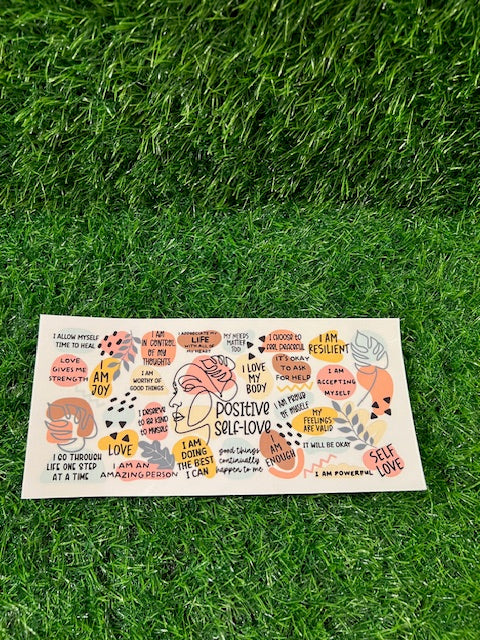 I ALLOW MYSELF
TIME TO HEAL
LOVE
GIVES ME
STRENGTH
I AM
JOY
I GO THROUGH
LIFE ONE STEP
AT A TIME
I AM
IN CONTROL
OF MY
THOUGHTS
I AM
WORTHY OF
GOOD THINGS
I DESERVE
TO BE KIND
TO MYSELF
LOVE
I AM AN
AMAZING PERSON
I APPRECIATE MY
LIFE
WITH ALL OF
MY HEART
MY NEEDS
MATTER
TOO
I LOVE
MY
BODY
POSITIVE
SELF-LOVE
I AM
DOING
THE BEST
I CAN
good things
continually
happen to me
I CHOOSE TO
FEEL PEACEFUL
IT'S OKAY
TO ASK
FOR HELP
I AM PROUD
OF MYSELF
I
AM
ENOUGH
I AM
RESILIENT
I AM
ACCEPTING
MYSELF
MY
FEELINGS
ARE VALID
IT WILL BE OKAY
I AM POWERFUL
SELF
LOVE